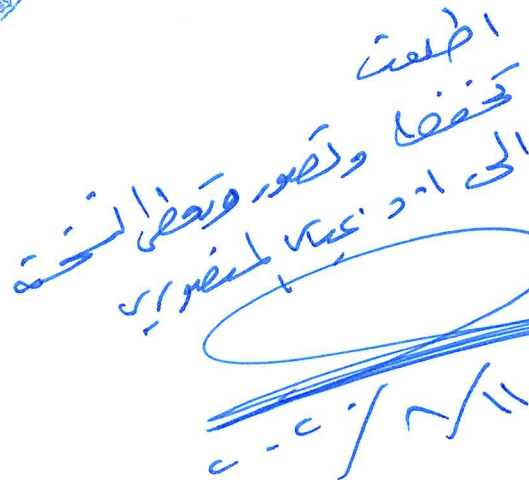 اطلعت
تحفظ وتصور وتعطى النسخة
الى ا.د عباس المنصوري
٢٠٢٠/٨/١١